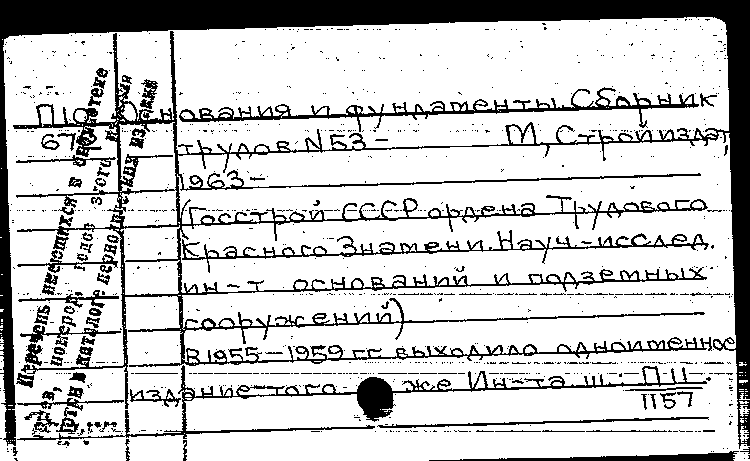 П10 Основания и фундаменты. Сборник
трудов. N53- М, Стройиздат,
1963-
(Госстрой СССР ордена Трудового
Красного Знамени. Науч.-исслед.
ин-т оснований и подземных
сооружений)
В 1955-1959 гг выходило одноименное
издание того же Ин-та ш.: П-11.
1157
Перечень имеющихся в библиотеке
номеров, годов этого издания
в каталоге периодических изданий